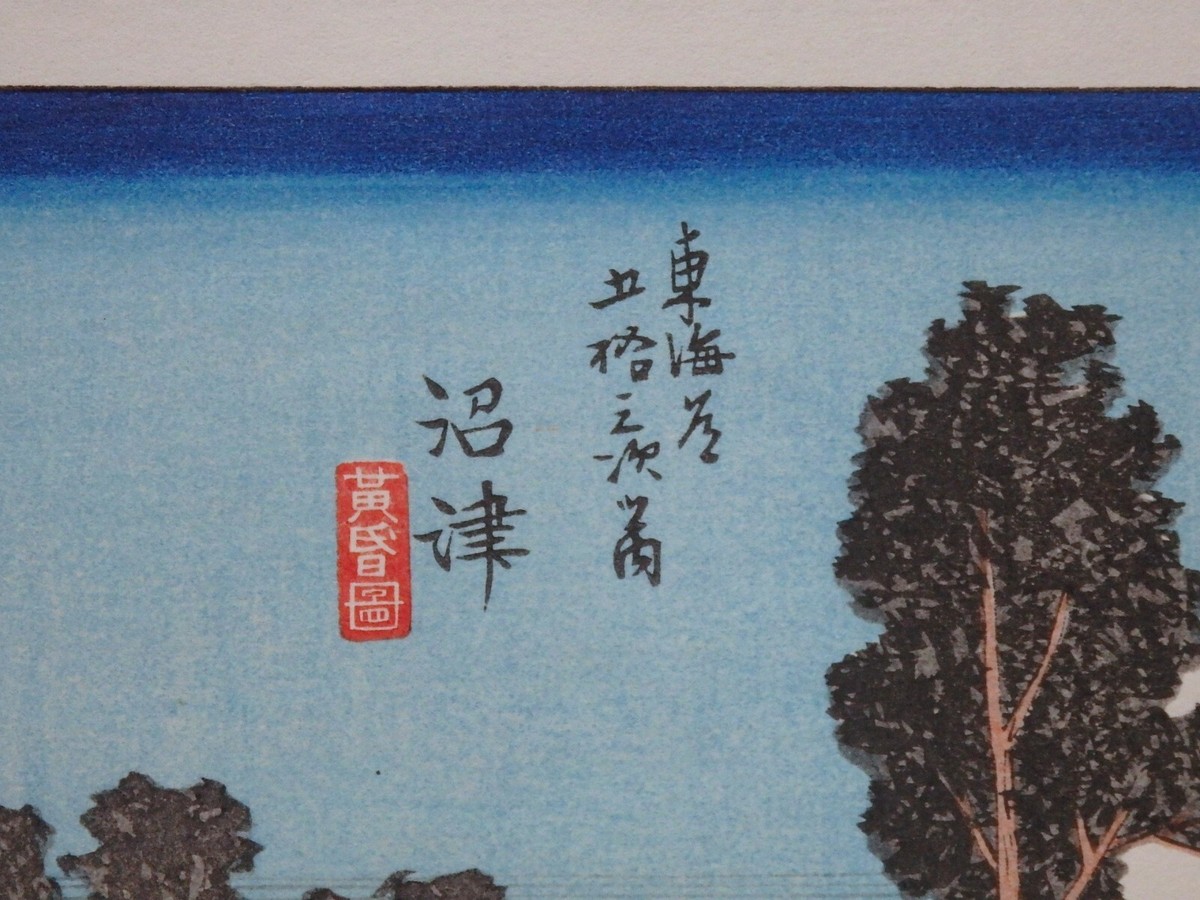 東海道
五拾三次之内
沼津
黄昏圖